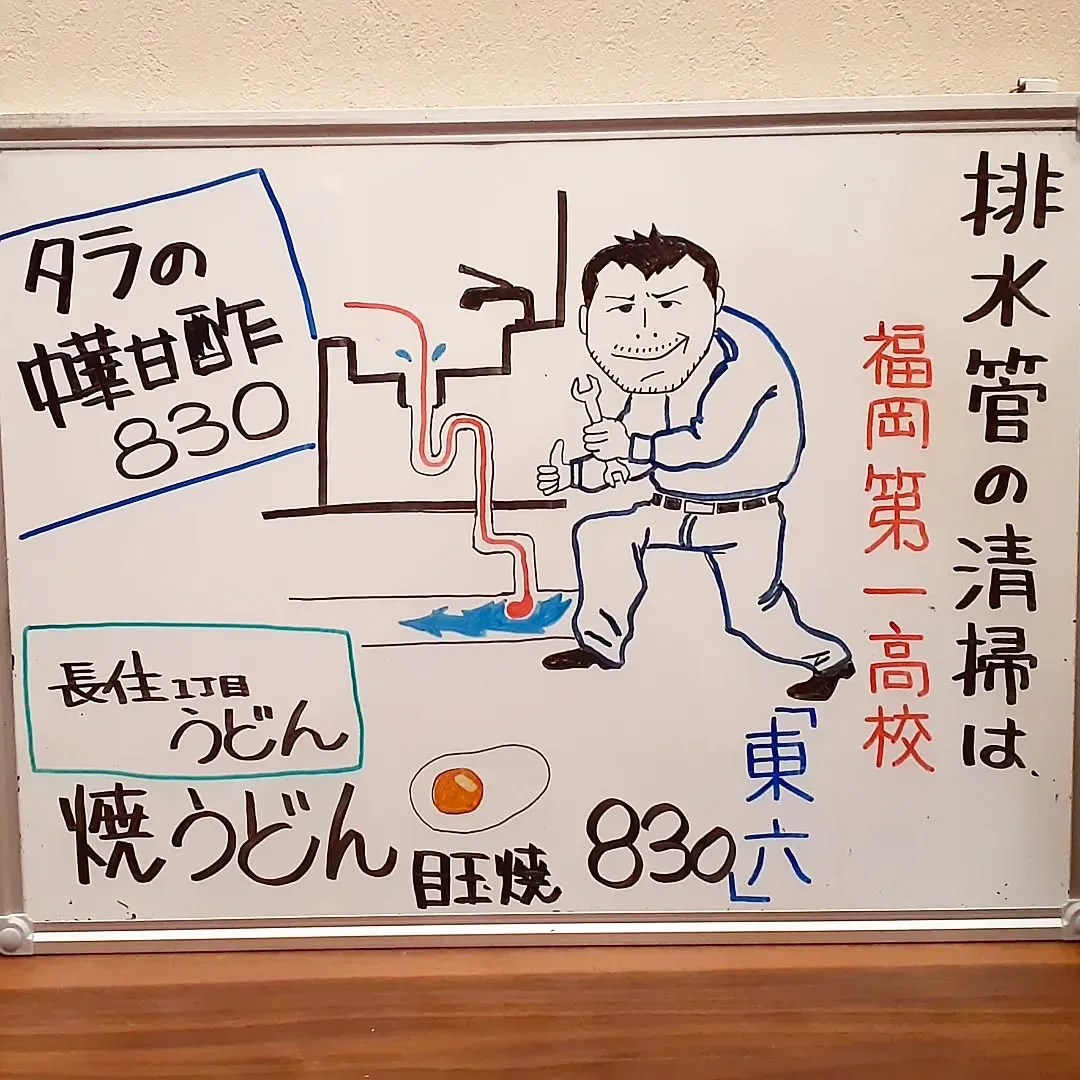 排水管の清掃は、
福岡第一高校
「東六」
タラの
中華甘酢
830
長住1丁目
うどん
焼うどん
目玉焼
830